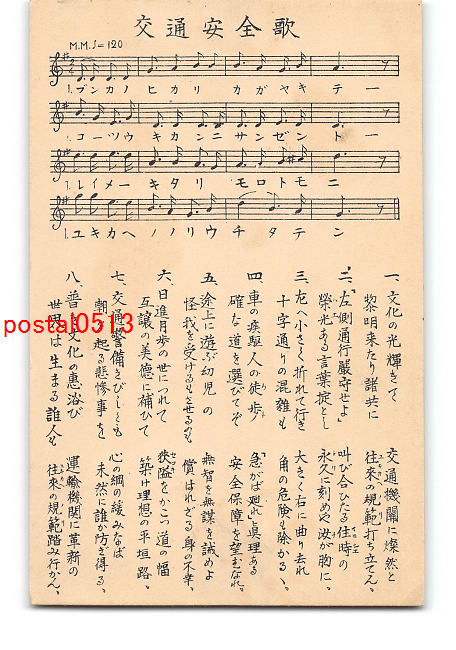 交通安全歌
M.M.♩=120
1.ブンカノヒカリカガヤキテー
1.コーツウキカンニサンゼントー
1.レイメーキタリモロトモニ
1.ユキカヘノノリウチタテン
一、文化の光輝きて
黎明来たり諸共に
交通機關に燦然と
往來の規範打ち立てん。
二、「左側通行嚴守せよ」
榮光ある言葉掟とし
叫び合ひたる住時の
永久に刻めや汝が胸に。
三、左へ小さく折れて行き
十字通りの混雜も
大きく右に曲り去れ
角の危險も除かる、
四、車の疾駆人の徒歩
確な道を選びてぞ
「急がば廻れ」眞理ある
安全保障を望むなれ。
五、途上に遊ぶ幼児の
怪我を受けるもさせるのも
無智を無謀を誡めよ
償はれざる身の不幸、
六、日進月歩の世につれて
互讓の美德に補ひて
狹隘をかこつ道の幅
築け理想の平垣路。
七、交通警備きびしくも
に起る悲惨事を
心の綱の緩みなば
未然に誰か防ぎ得る。
八、普く文化の惠浴び
世界は生まる誰人も
運輸機關に革新の
往來の規範踏み行かん。
postal0513